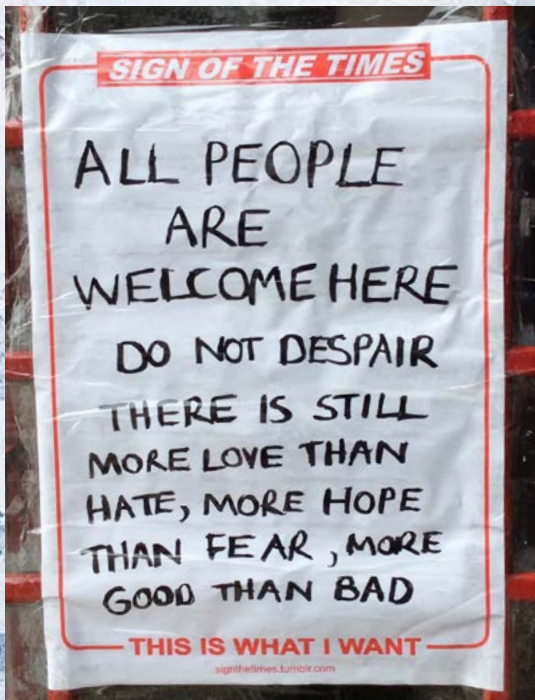 SIGN OF THE TIMES
ALL PEOPLE
ARE
WELCOME HERE
DO NOT DESPAIR
THERE IS STILL
MORE LOVE THAN
HATE, MORE HOPE
THAN FEAR, MORE
GOOD THAN BAD
THIS IS WHAT I WANT
signthetimes.tumblr.com